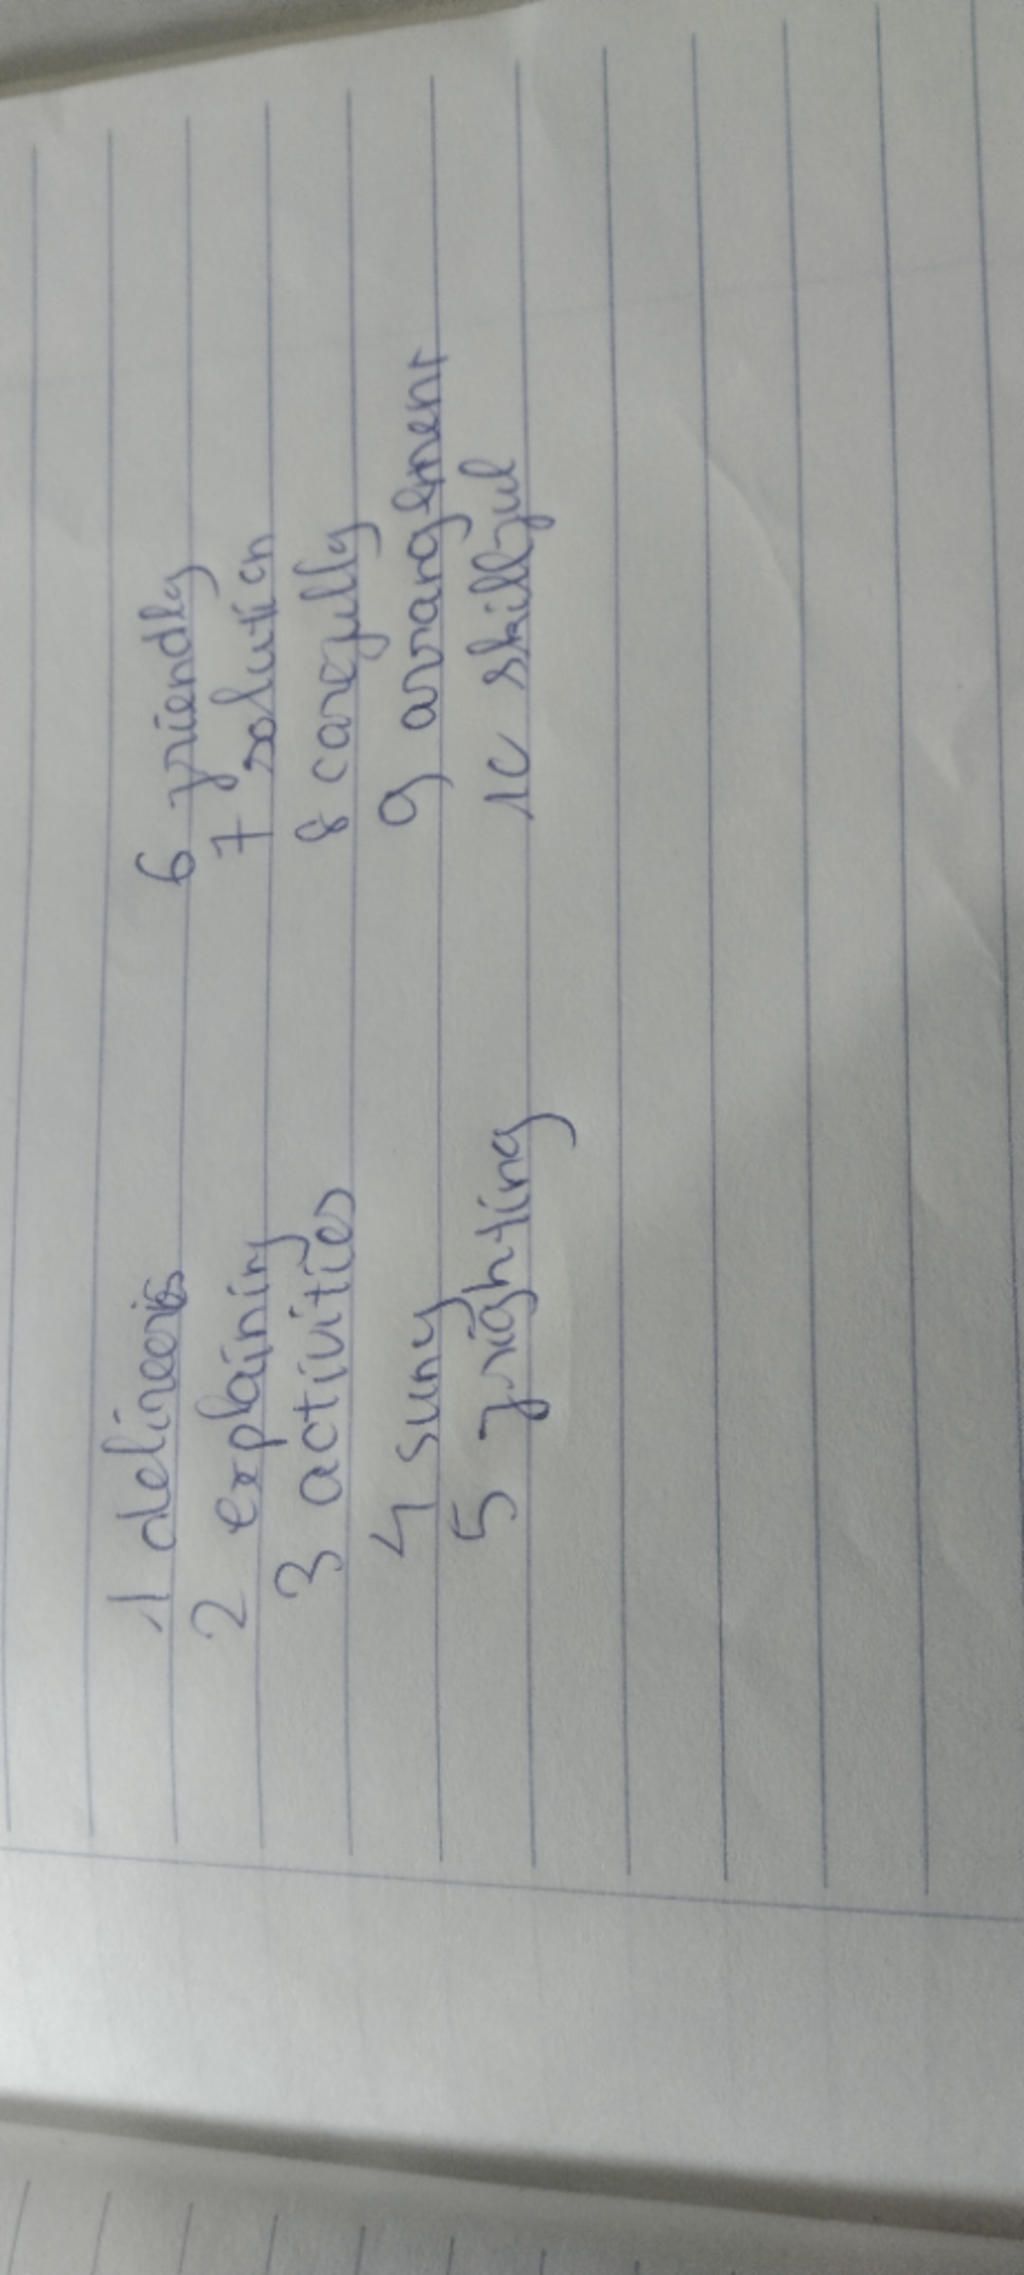 1 delineeris
2 explaining
3 activities
4 suny
5 frighting
6 friendly
7 solution
8 carefully
9 arrangement
10 skillful